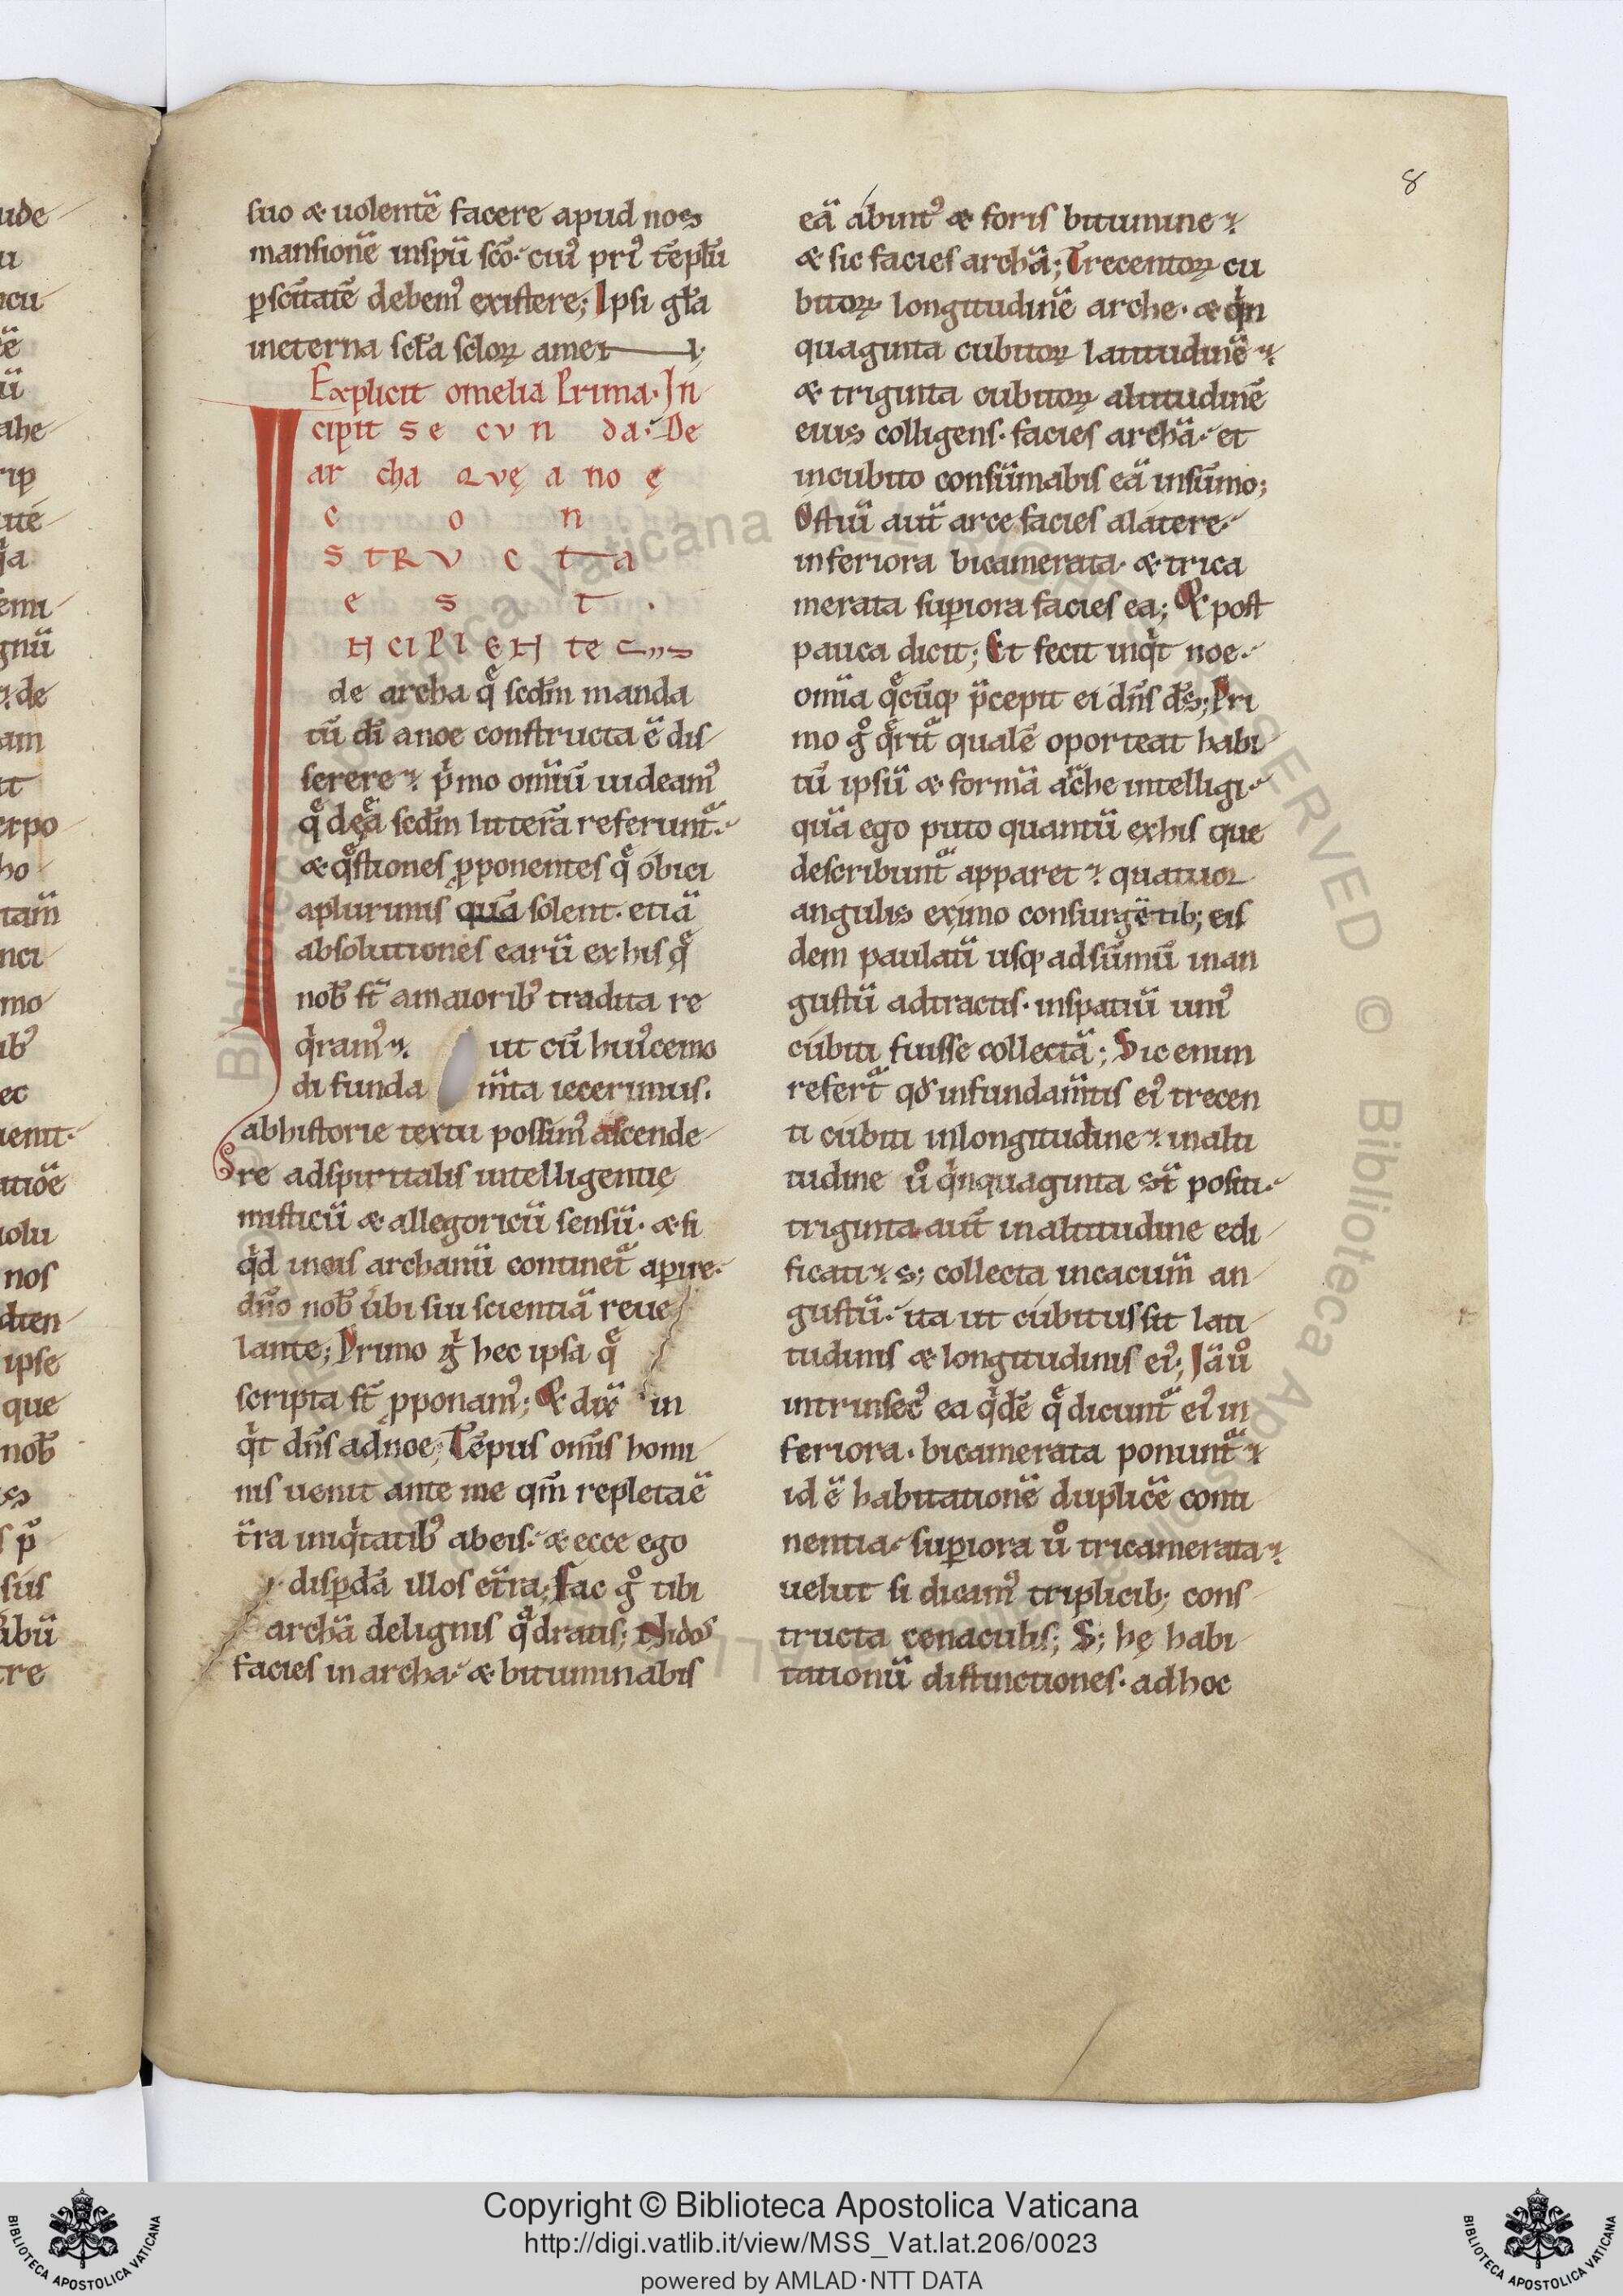 8
suo & uolentē facere apud nos
mansionē inspū sc̄o· cui᷒ pri᷒ tēplū
ꝑscītatē debem᷒ existere; Ipsi gl̄a
ineterna sc̄la scl̄oꝝ amen
Explicit omelia Prima· In
cipit se cvn da· De
ar cha qvę a no ę
c o n
s trv c t a
e s t .
I
NCIPIENtes
de archa q̄ scd̄m manda
tū dī a noe constructa ē dis
serere p̍mo omīū uideam᷒
q̄ dęā scd̄m litterā referunt᷑
& q̄stiones ꝓponentes q̄ obici
aplurimis quā solent· etiā
absolutiones earū ex his q̄
nob̄ st̄ amaiorib᷒ tradita re
q̍ram᷒ ut cū hui᷒cemo
di funda m̄ta iecerimus.
abhistorie textu possim᷒ ascende
re adspiritalis intelligentię
misticū & allegoricū sensū· & si
q̍d ineis archanū continet᷑ aperire·
dn̄o nob̄ ubi sui scientiā reue
lante; Primo g̍ hec ipsa q̄
scripta st̄ ꝓponam᷒; & dix̄ in
q̍t dn̄s adnoe; Tēpus omīs homi
nis uenit ante me qm̄ repleta ē
t̄ra iniq̍tatib᷒ abeis· & ecce ego
disꝑdā illos et̄ra; Fac g° tibi
archā delignis q̄dratis; Nidos
facies in archa· & bituminabis
eā abint᷒ & foris bitumine
& sic facies archā; Trecentoꝝ cu
bitoꝝ longitudinē arche· & q̍n
quaginta cubitoꝝ latitudinē
& triginta cubitoꝝ altitudinē
eius colligens· facies archā· et
incubito consūmabis eā insūmo;
Ostiū aut̄ arce facies alatere·
inferiora bicamerata· & trica
merata suꝑiora facies ea; & post
pauca dicit; Et fecit inq̍t noe·
omīa q̄cūq; p̄cepit ei dn̄s d̄s; Pri
mo g° q̄rit᷑ qualē oporteat habi
tū ipsū & formā ac̄he intelligi·
quā ego puto quantū exhis que
describunt᷑ apparet quatuor
angulis eximo consurgētib; eis
dem paulatī usq; adsūmū inan
gustū adtractis· inspatiū uni᷒
cubiti fuisse collectā; Sic enim
refert᷑ qđ infundam̄tis ei᷒ trecen
ti cubiti inlongitudine inlati
tudine u° q̍nquaginta st̄ positi·
triginta aut̄ inaltitudine edi
ficati s; collecta incacum̄ an
gustū· ita ut cubitus sit lati
tudinis & longitudinis ei᷒; Iā u°
intrinsec᷒ ea q̍dē q̄ dicunt᷑ ei᷒ in
feriora· bicamerata ponunt᷑
id ē habitationē duplicē conti
nentia· suꝑiora u° tricamerata
uelut si dicam᷒ triplicib; cons
tructa cenaculis; S; hę habi
tationū distinctiones· adhoc
ude
u
cu
ahe
rip
am
erpo
ho
tam̄
nci
mo
ec
uenit·
atiōe
uolu
nos
dien
ipse
que
nob̄
sus
ibū
tre
Copyright © Biblioteca Apostolica Vaticana
http://digi.vatlib.it/view/MSS_Vat.lat.206/0023
powered by AMLAD·NTT DATA
BIBLIOTECA APOSTOLICA VATICANA
BIBLIOTECA APOSTOLICA VATICANA